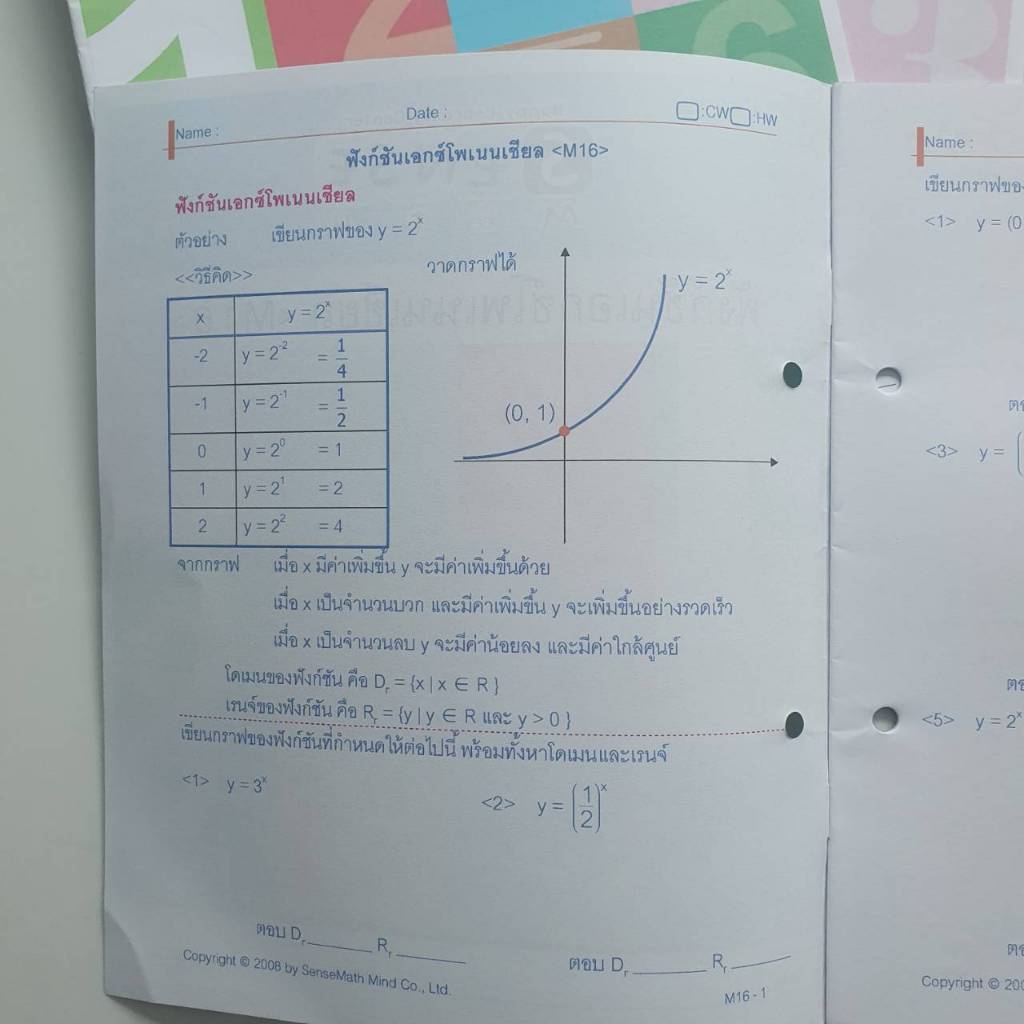 Name :
Date :
:CW :HW
ฟังก์ชันเอกซ์โพเนนเชียล <M16>
ฟังก์ชันเอกซ์โพเนนเชียล
ตัวอย่าง เขียนกราฟของ y = 2ˣ
<<วิธีคิด>>
วาดกราฟได้
x y = 2ˣ
-2 y = 2⁻² = 1/4
-1 y = 2⁻¹ = 1/2
0 y = 2⁰ = 1
1 y = 2¹ = 2
2 y = 2² = 4
y = 2ˣ
(0, 1)
จากกราฟ เมื่อ x มีค่าเพิ่มขึ้น y จะมีค่าเพิ่มขึ้นด้วย
เมื่อ x เป็นจำนวนบวก และมีค่าเพิ่มขึ้น y จะเพิ่มขึ้นอย่างรวดเร็ว
เมื่อ x เป็นจำนวนลบ y จะมีค่าน้อยลง และมีค่าใกล้ศูนย์
โดเมนของฟังก์ชัน คือ Dᵣ = {x | x ∈ R }
เรนจ์ของฟังก์ชัน คือ Rᵣ = {y | y ∈ R และ y > 0 }
เขียนกราฟของฟังก์ชันที่กำหนดให้ต่อไปนี้ พร้อมทั้งหาโดเมนและเรนจ์
<1> y = 3ˣ
<2> y = (1/2)ˣ
ตอบ Dᵣ______ Rᵣ______
ตอบ Dᵣ______ Rᵣ______
Copyright © 2008 by SenseMath Mind Co., Ltd.
M16 - 1
Name :
เขียนกราฟของ
<1> y = (0
<3> y = (
<5> y = 2ˣ
Copyright © 200